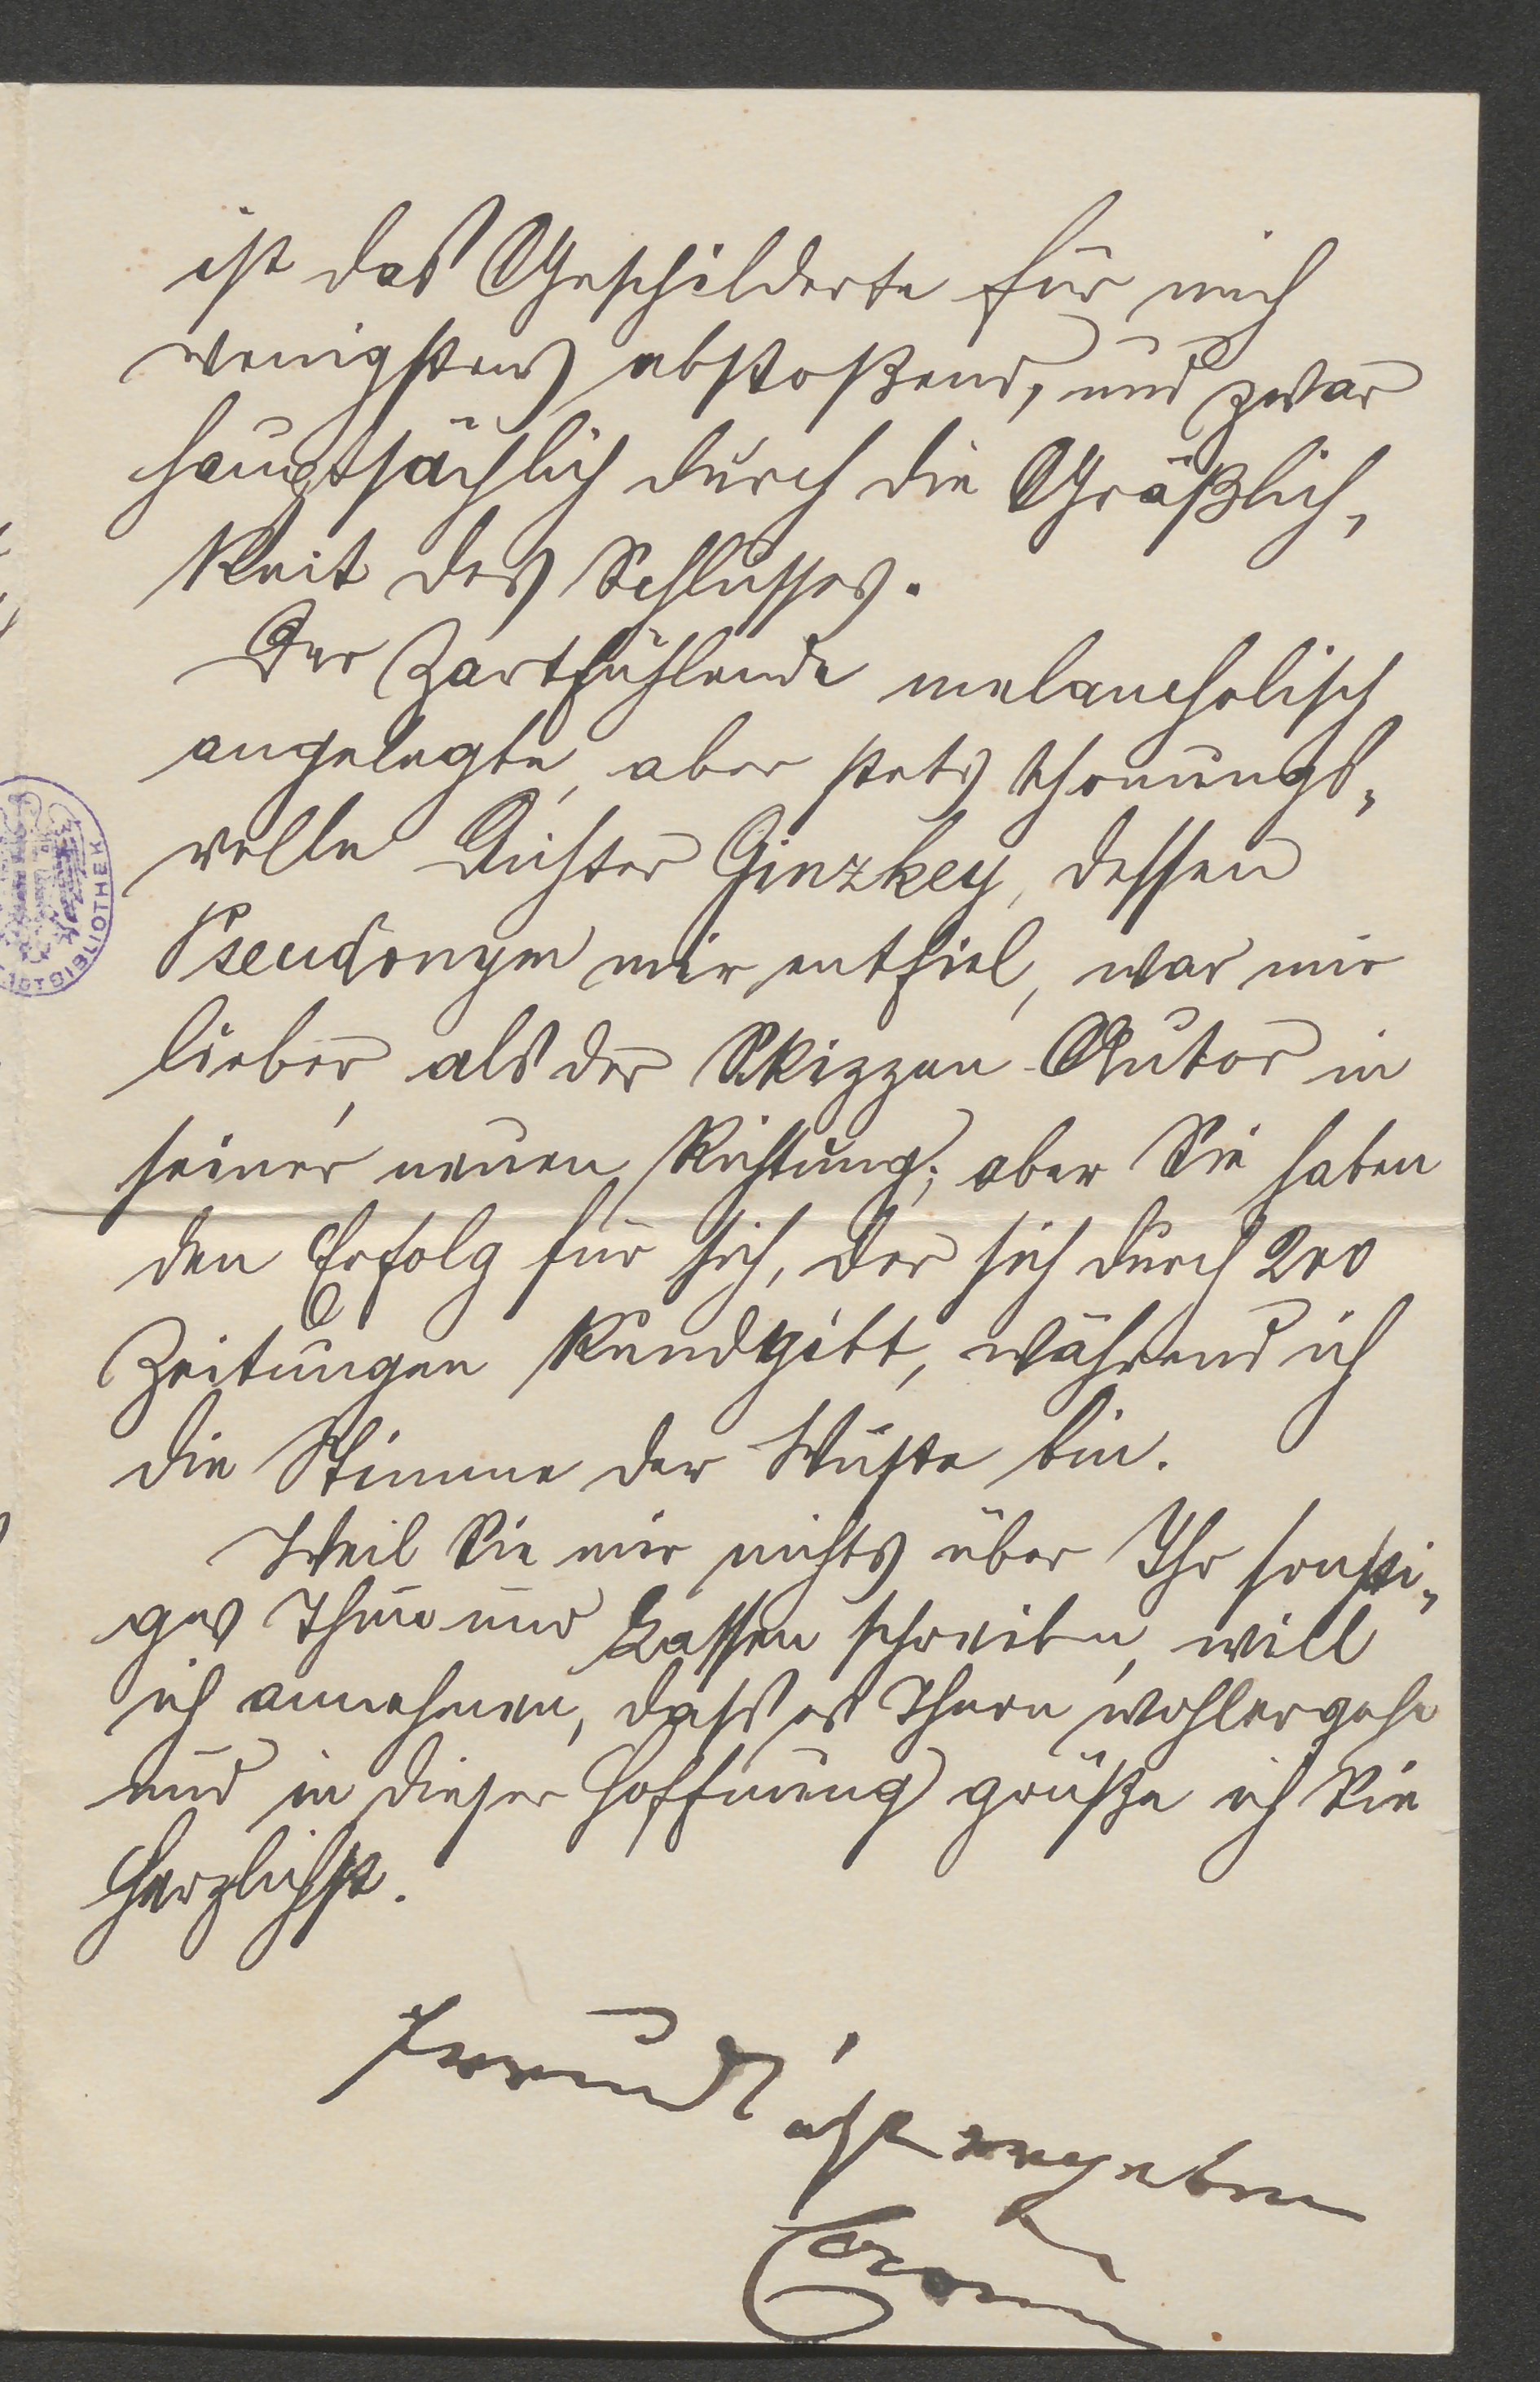 ist das Geschilderte für mich
wenigstens abstoßend, und zwar
hauptsächlich durch die Gräßlich-
keit des Schlusses.
Der Zartfühlende melancholisch
angelegte, aber stets
volle Dichter Ginzkey, dessen
Pseudonym mir entfiel, war mir
lieber, als der Skizzen-Autor in
seiner neuen Richtung; aber Sie haben
den Erfolg für sich, der sich durch 200
Zeitungen kundgibt, während ich
die Stimme der Wüste bin.
Weil Sie mir nichts über Ihr sonsti-
ges Thun und Lassen schreiben, will
ich annehmen, dass es Ihnen wohlergehe
und in dieser Hoffnung grüße ich Sie
Herzlichst.
Freundlichst ergeben
BIBLIOTHEK